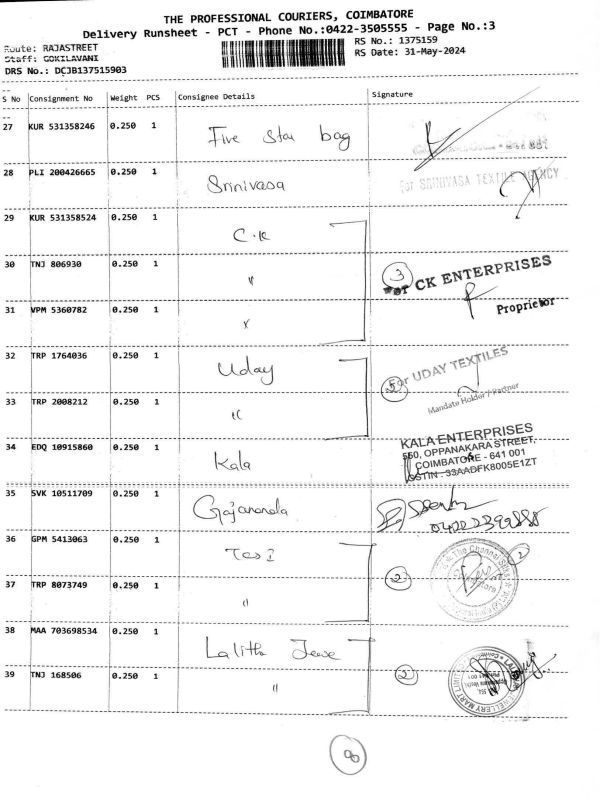 THE PROFESSIONAL COURIERS, COIMBATORE
Delivery Runsheet - PCT - Phone No.:0422-3505555 - Page No.:3
Route: RAJASTREET
RS No.: 1375159
Staff: GOKILAVANI
RS Date: 31-May-2024
DRS No.: DCJB137515903
S No Consignment No Weight PCS Consignee Details Signature
27 KUR 531358246 0.250 1 Five Star bag
28 PLI 200426665 0.250 1 Srinivasa
For SRINIVASA TEXTILE AGENCY
29 KUR 531358524 0.250 1 C.K
30 TNJ 806930 0.250 1 "
3
CK ENTERPRISES
31 VPM 5360782 0.250 1 "
Proprietor
32 TRP 1764036 0.250 1 Uday
For UDAY TEXTILES
33 TRP 2008212 0.250 1 "
Mandate Holder / Partner
34 EDQ 10915860 0.250 1 Kala
KALA ENTERPRISES
550, OPPANAKARA STREET,
COIMBATORE - 641 001
GSTIN : 33AADFK8005E1ZT
35 SVK 10511709 0.250 1 Gajananda
36 GPM 5413063 0.250 1
2
37 TRP 8073749 0.250 1 "
2
38 MAA 703698534 0.250 1 Lalitha Jewe
39 TNJ 168506 0.250 1 "
2